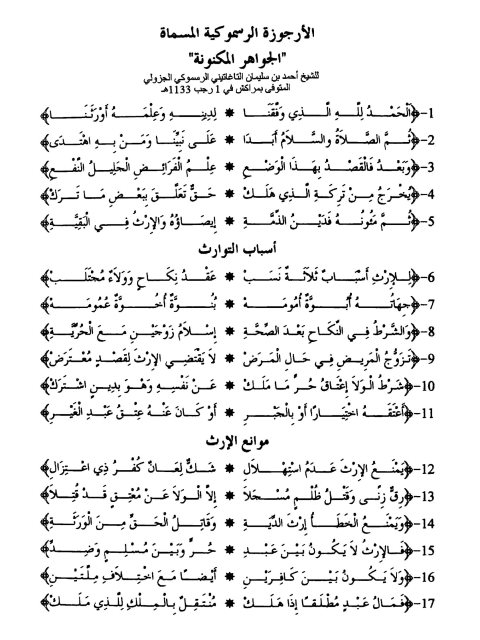 الأرجوزة الرسموكية المسماة
"الجواهر المكنونة"
للشيخ أحمد بن سليمان التاغاتيني الرسموكي الجزولي
المتوفى بمراكش في 1 رجب 1133هـ
1-﴿اَلْحَمْدُ لِلَّهِ الَّذِي وَفَّقَنَا ✷ لِدِينِهِ وَعِلْمَهُ أَوْرَثَنَا﴾
2-﴿ثُمَّ الصَّلاَةُ والسَّلاَمُ أَبَدَا ✷ عَلَى نَبِيِّنَا وَمَنْ بِهِ اهْتَدَى﴾
3-﴿وَبَعْدُ فَالْقَصْدُ بِهَذَا الْوَضْعِ ✷ عِلْمُ الْفَرَائِضِ الْجَلِيلُ النَّفْعِ﴾
4-﴿يُخْرَجُ مِنْ تَرِكَةِ الَّذِي هَلَكْ ✷ حَقٌّ تَعَلَّقَ بِبَعْضِ مَا تَرَكْ﴾
5-﴿ثُمَّ مَئُونُهُ فَدَيْنُ الذِّمَّةِ ✷ إِيصَاؤُهُ وَالإِرْثُ فِي الْبَقِيَّةِ﴾
أسباب التوارث
6-﴿لِلإِرْثِ أَسْبَابٌ ثَلاَثَةٌ نَسَبْ ✷ عَقْدُ نِكَاحٍ وَوَلاَءٌ مُجْتَلَبْ﴾
7-﴿جِهَاتُهُ أُبُوَّةٌ أُمُومَهْ ✷ بُنُوَّةٌ أُخُوَّةٌ عُمُومَهْ﴾
8-﴿وَالشَّرْطُ فِي النِّكَاحِ بَعْدَ الصِّحَّةِ ✷ إِسْلاَمُ زَوْجَيْنِ مَعَ الْحُرِّيَّةِ﴾
9-﴿تَزَوُّجُ الْمَرِيضِ فِي حَالِ الْمَرَضْ ✷ لاَ يَقْتَضِي الإِرْثَ لِقَصْدٍ مُعْتَرَضْ﴾
10-﴿شَرْطُ الْوَلاَ إِعْتَاقُ حُرٍّ مَا مَلَكْ ✷ عَنْ نَفْسِهِ وَهْوَ بِدِينٍ اشْتَرَكْ﴾
11-﴿أَعْتَقَهُ اخْتِيَارًا أَوْ بِالْجَبْرِ ✷ أَوْ كَانَ عَنْهُ عِتْقُ عَبْدِ الْغَيْرِ﴾
موانع الإرث
12-﴿يَمْنَعُ الإِرْثَ عَدَمُ اسْتِهْلاَلِ ✷ شَكٌّ لِعَانٌ كُفْرُ ذِي اعْتِزَالِ﴾
13-﴿رِقٌّ زِنًى وَقَتْلُ ظُلْمٍ مُسْجَلاَ ✷ إِلاَّ الْوَلاَ عَنْ مُعْتِقٍ قَدْ قُتِلاَ﴾
14-﴿وَيَمْنَعُ الْخَطَأُ إِرْثَ الدِّيَةِ ✷ وَقَاتِلُ الْحَقِّ مِنَ الْوَرَثَةِ﴾
15-﴿فَالإِرْثُ لاَ يَكُونُ بَيْنَ عَبْدِ ✷ حُرٍّ وَبَيْنَ مُسْلِمٍ وَضِدِّ﴾
16-﴿وَلاَ يَكُونُ بَيْنَ كَافِرَيْنِ ✷ أَيْضًا مَعَ اخْتِلاَفِ مِلَّتَيْنِ﴾
17-﴿فَمَالُ عَبْدٍ مُطْلَقًا إِذَا هَلَكْ ✷ مُنْتَقِلٌ بِالْمِلْكِ لِلَّذِي مَلَكْ﴾